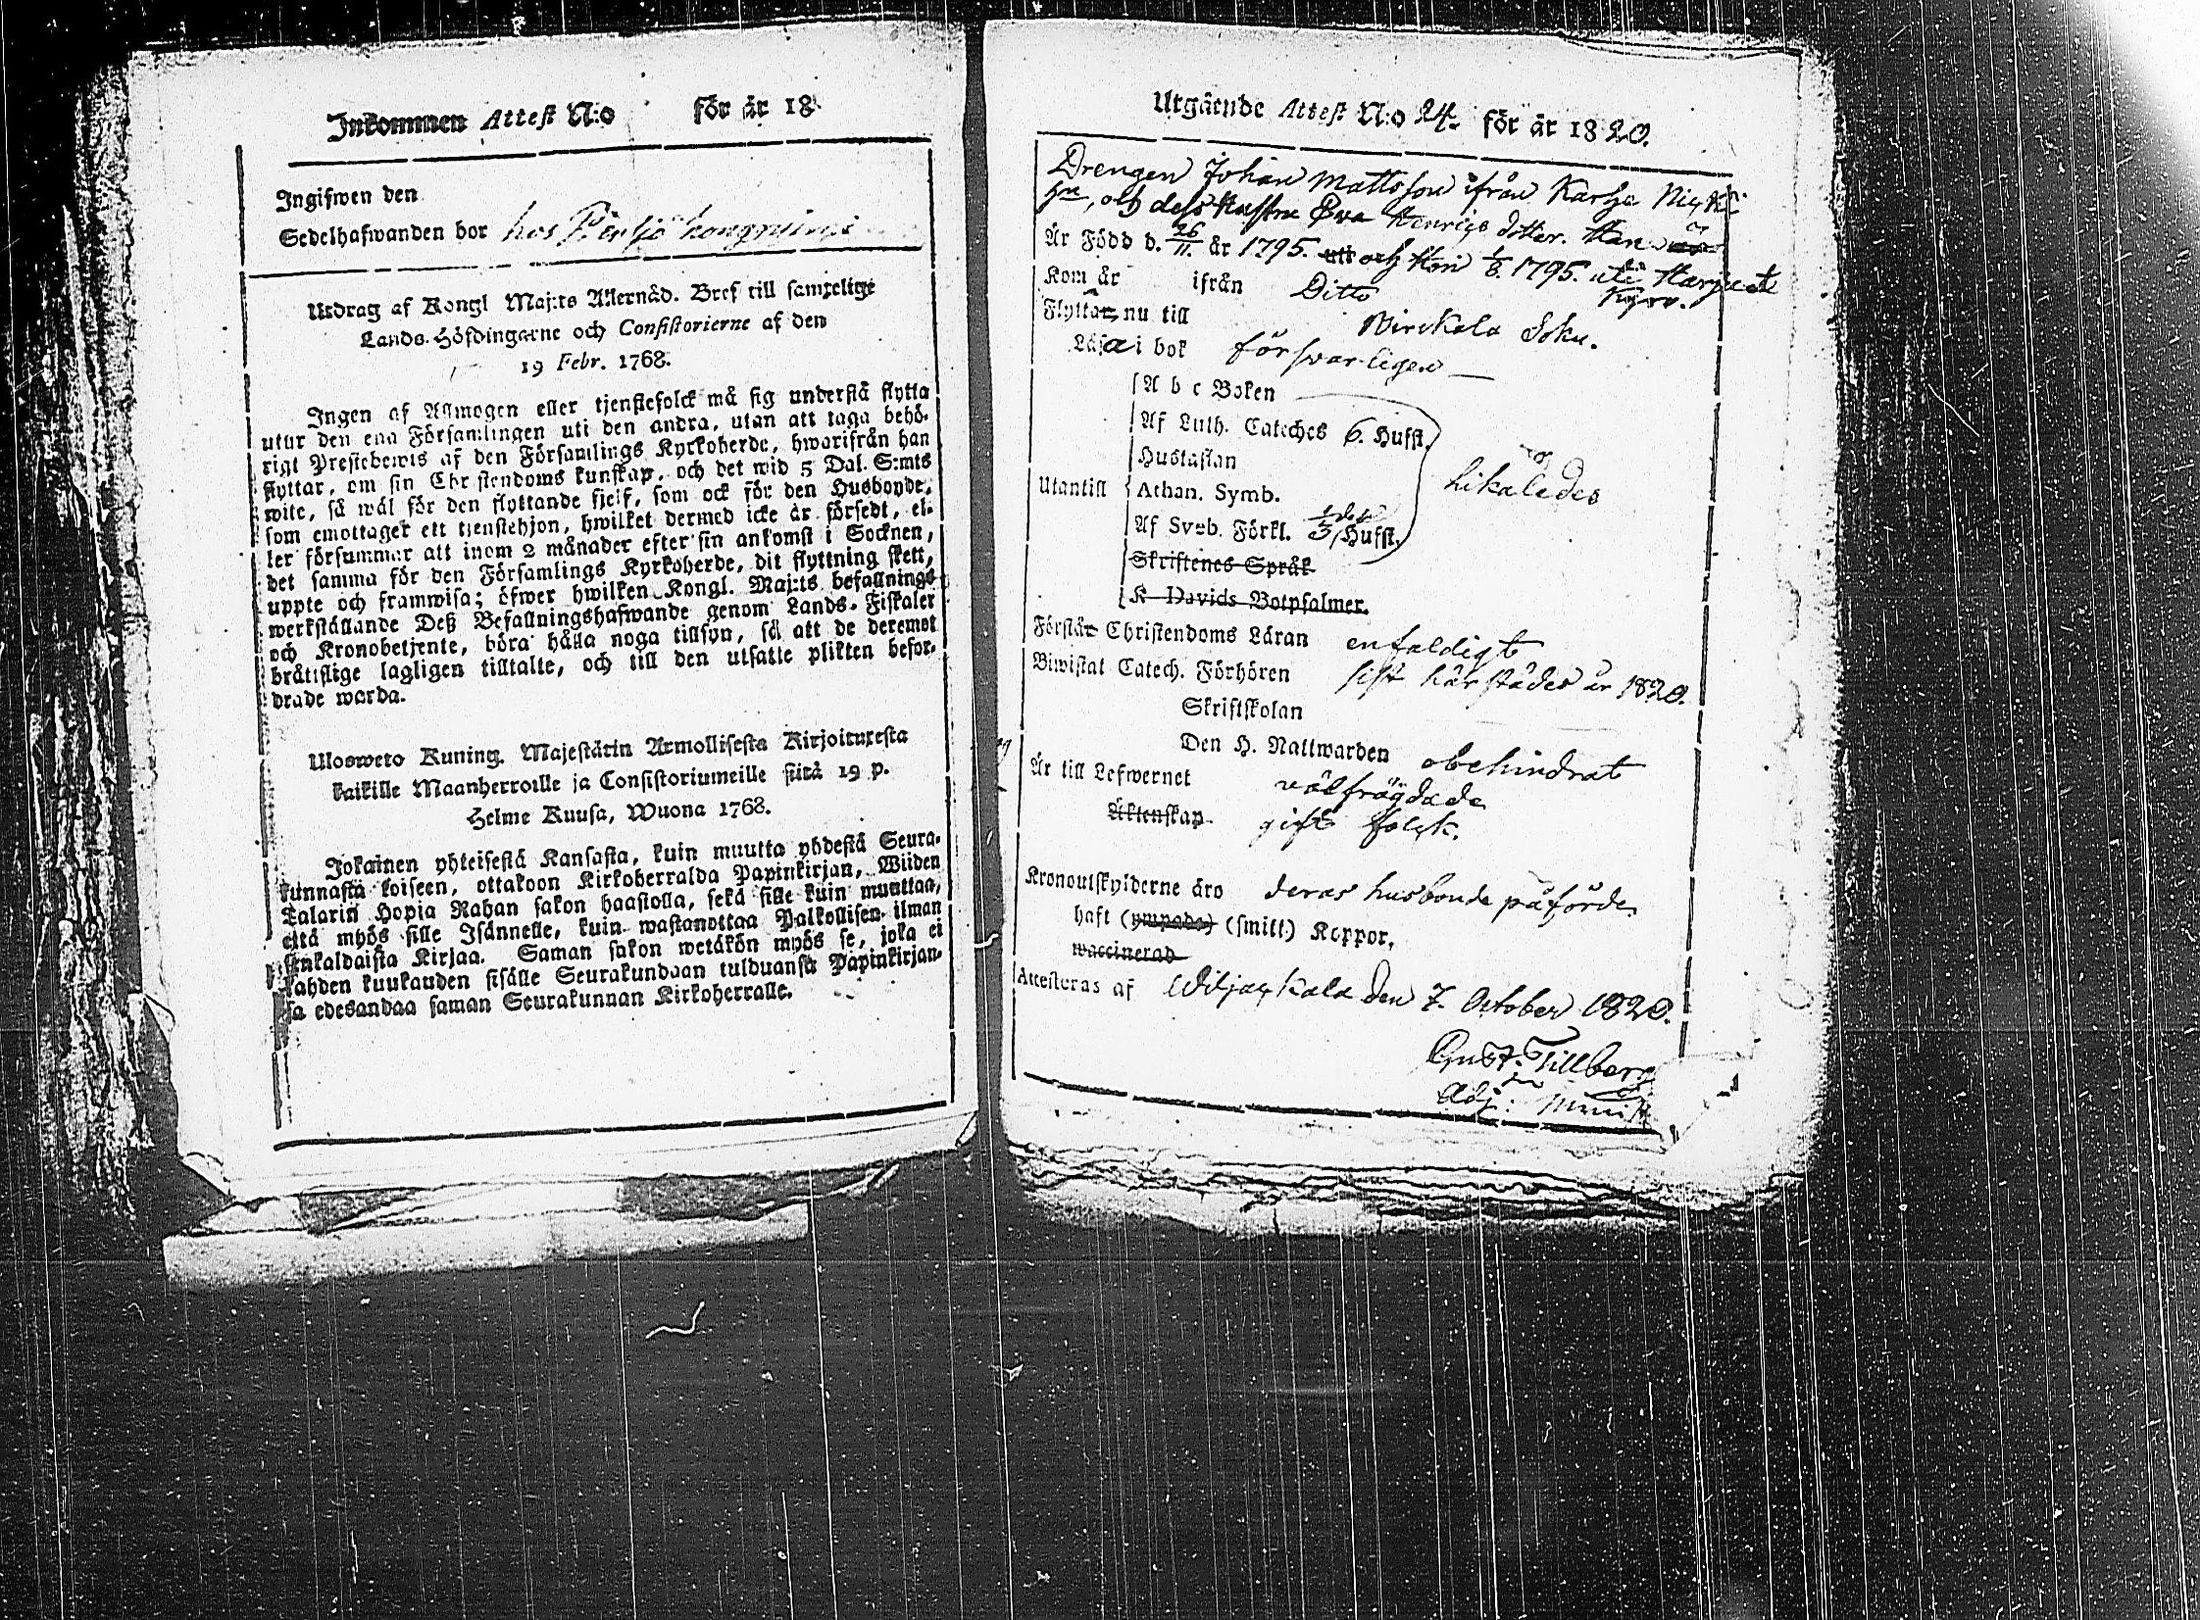 Inkommen Attest N:o för år 18
Ingifwen den
Sedelhafwanden bor hos
Utdrag af Kongl Maj:ts Allernåd. Bref till samtelige
Lands-Höfdingarne och Consistorierne af den
19 Febr. 1768.
Ingen af Allmogen eller tjenstefolck må sig understå flytta
utur den ena Församlingen uti den andra, utan att taga behö-
rigt Prestebewis af den Församlings Kyrkoherde, hwarifrån han
flyttar, om sin Christendoms kunskap, och det wid 5 Dal. S:mts
wite, så wäl för den flyttande sjelf, som ock för den Husbonde,
som emottager ett tjenstehjon, hwilket dermed icke är försedt, el-
ler försummar att inom 2 månader efter sin ankomst i Socknen,
det samma för den Församlings Kyrkoherde, dit flyttning skett,
uppte och framwisa; öfwer hwilken Kongl. Maj:ts befallnings
werkställande Deß Befallningshafwande genom Lands-Fiskaler
och Kronobetjente, böra hålla noga tillsyn, så att de deremot
bråttslige lagligen tilltalte, och till den utsatte plikten befor-
drade warda.
Ulosweto Kuning. Majestätin Armollisesta Kirjoituxesta
kaikille Maanherroille ja Consistoriumeille siitä 19 p.
Helme Kuusa, Wuona 1768.
Jokainen yhteisestä Kansasta, kuin muutta yhdestä Seura-
kunnasta toiseen, ottakoon Kirkoherralda Papinkirjan, Wiiden
Talarin Hopia Rahan sakon haastolla, sekä sille kuin muuttaa,
että myös sille Isännelle, kuin wastanottaa Palkollisen ilman
senkaldaista Kirjaa. Saman sakon wetäkön myös se, joka ei
kahden kuukauden sisälle Seurakundaan tulduansa Papinkirjan-
sa edesandaa saman Seurakunnan Kirkoherralle.
Utgående Attest N:o 24. för år 1820.
Drengen Johan Mattsson ifrån Karhe
hn, och dess hustru Eva Henrigs dotter. Han är
Är Född d. 26/11. år 1795. och Hon 1/8. 1795. uti
Kyro.
Kom år ifrån Ditto
Flytta nu till Birckala Sokn.
Läsa i bok försvarligen
A b c Boken
Af Luth. Cateches 6. Hufst.
Hustaflan
Utantill Athan. Symb. likaledes
Af Sveb. Förkl. 3 Hufst.
Skriftenes Språk
K Davids Botpsalmer.
Förstår Christendoms Läran enfaldigt
Biwistat Catech. Förhören sist härstädes år 1820.
Skriftskolan
Den H. Nattwarden obehindrat
Är till Lefwernet välfrägdade
Äktenskap gift folck.
Kronoutskylderne äro deras husbonde påförde.
haft (ympade) (smitt) Koppor.
waccinerad
Attesteras af Wiljackala den 7. October 1820.
Gust. Tillberg
Adj: